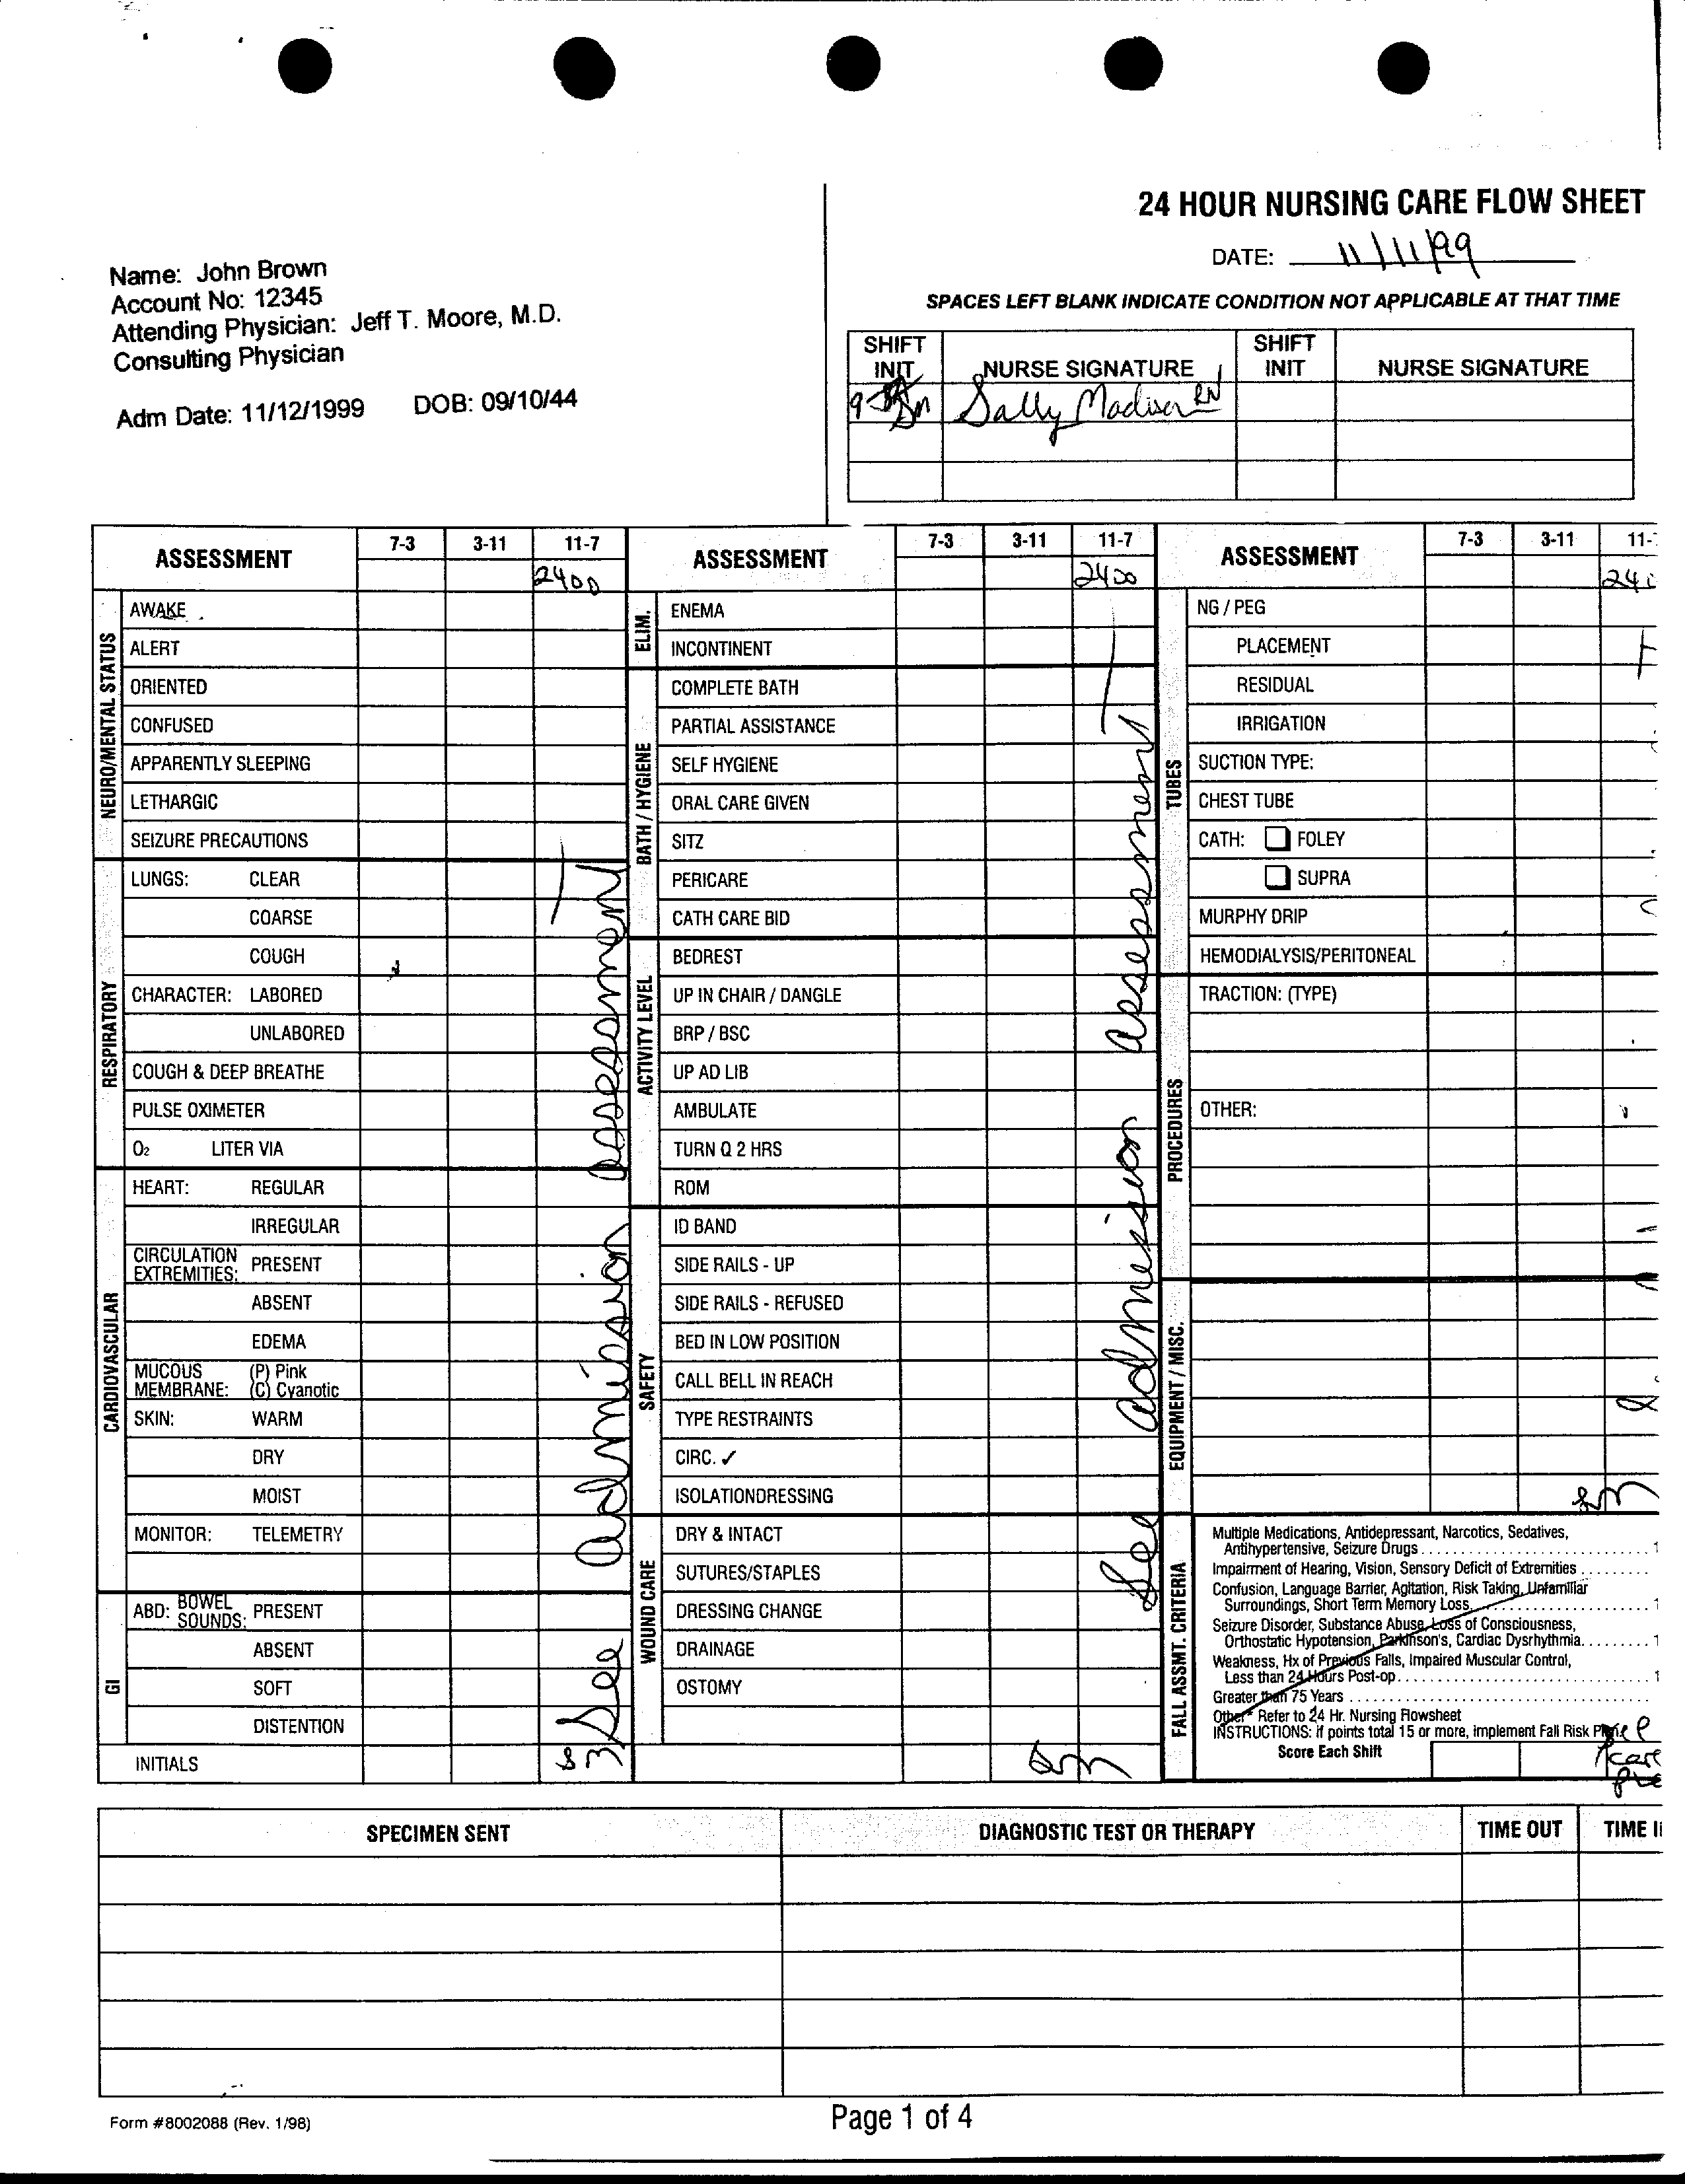 24 HOUR NURSING CARE FLOW SHEET
DATE: 11/11/99
SPACES LEFT BLANK INDICATE CONDITION NOT APPLICABLE AT THAT TIME
Name: John Brown
Account No: 12345
Attending Physician: Jeff T. Moore, M.D.
Consulting Physician
Adm Date: 11/12/1999 DOB: 09/10/44
SHIFT INIT NURSE SIGNATURE SHIFT INIT NURSE SIGNATURE
Sm Sally Madison RN
ASSESSMENT 7-3 3-11 11-7
2400
NEURO/MENTAL STATUS
AWAKE
ALERT
ORIENTED
CONFUSED
APPARENTLY SLEEPING
LETHARGIC
SEIZURE PRECAUTIONS
RESPIRATORY
LUNGS: CLEAR
COARSE
COUGH
CHARACTER: LABORED
UNLABORED
COUGH & DEEP BREATHE
PULSE OXIMETER
O2 LITER VIA
CARDIOVASCULAR
HEART: REGULAR
IRREGULAR
CIRCULATION EXTREMITIES: PRESENT
ABSENT
EDEMA
MUCOUS MEMBRANE: (P) Pink
(C) Cyanotic
SKIN: WARM
DRY
MOIST
MONITOR: TELEMETRY
GI
ABD: BOWEL SOUNDS: PRESENT
ABSENT
SOFT
DISTENTION
INITIALS Sm
See admission assessment
ASSESSMENT 7-3 3-11 11-7
2400
ELIM.
ENEMA
INCONTINENT
BATH / HYGIENE
COMPLETE BATH
PARTIAL ASSISTANCE
SELF HYGIENE
ORAL CARE GIVEN
SITZ
PERICARE
CATH CARE BID
ACTIVITY LEVEL
BEDREST
UP IN CHAIR / DANGLE
BRP / BSC
UP AD LIB
AMBULATE
TURN Q 2 HRS
ROM
SAFETY
ID BAND
SIDE RAILS - UP
SIDE RAILS - REFUSED
BED IN LOW POSITION
CALL BELL IN REACH
TYPE RESTRAINTS
CIRC. ✓
ISOLATIONDRESSING
WOUND CARE
DRY & INTACT
SUTURES/STAPLES
DRESSING CHANGE
DRAINAGE
OSTOMY
Sm
See admission assessment
ASSESSMENT 7-3 3-11 11-
240
TUBES
NG / PEG
PLACEMENT
RESIDUAL
IRRIGATION
SUCTION TYPE:
CHEST TUBE
CATH: FOLEY
SUPRA
MURPHY DRIP
HEMODIALYSIS/PERITONEAL
PROCEDURES
TRACTION: (TYPE)
OTHER:
EQUIPMENT / MISC.
Sm
FALL ASSMT. CRITERIA
Multiple Medications, Antidepressant, Narcotics, Sedatives,
Antihypertensive, Seizure Drugs . . . . 1
Impairment of Hearing, Vision, Sensory Deficit of Extremities . . . .
Confusion, Language Barrier, Agitation, Risk Taking, Unfamilliar
Surroundings, Short Term Memory Loss . . . . 1
Seizure Disorder, Substance Abuse, Loss of Consciousness,
Orthostatic Hypotension, Parkinson's, Cardiac Dysrhythmia. . . . 1
Weakness, Hx of Previous Falls, Impaired Muscular Control,
Less than 24 Hours Post-op . . . . 1
Greater than 75 Years . . . .
Other - Refer to 24 Hr. Nursing Flowsheet
INSTRUCTIONS: If points total 15 or more, implement Fall Risk
Score Each Shift
care
SPECIMEN SENT DIAGNOSTIC TEST OR THERAPY TIME OUT TIME
Form #8002088 (Rev. 1/98)
Page 1 of 4